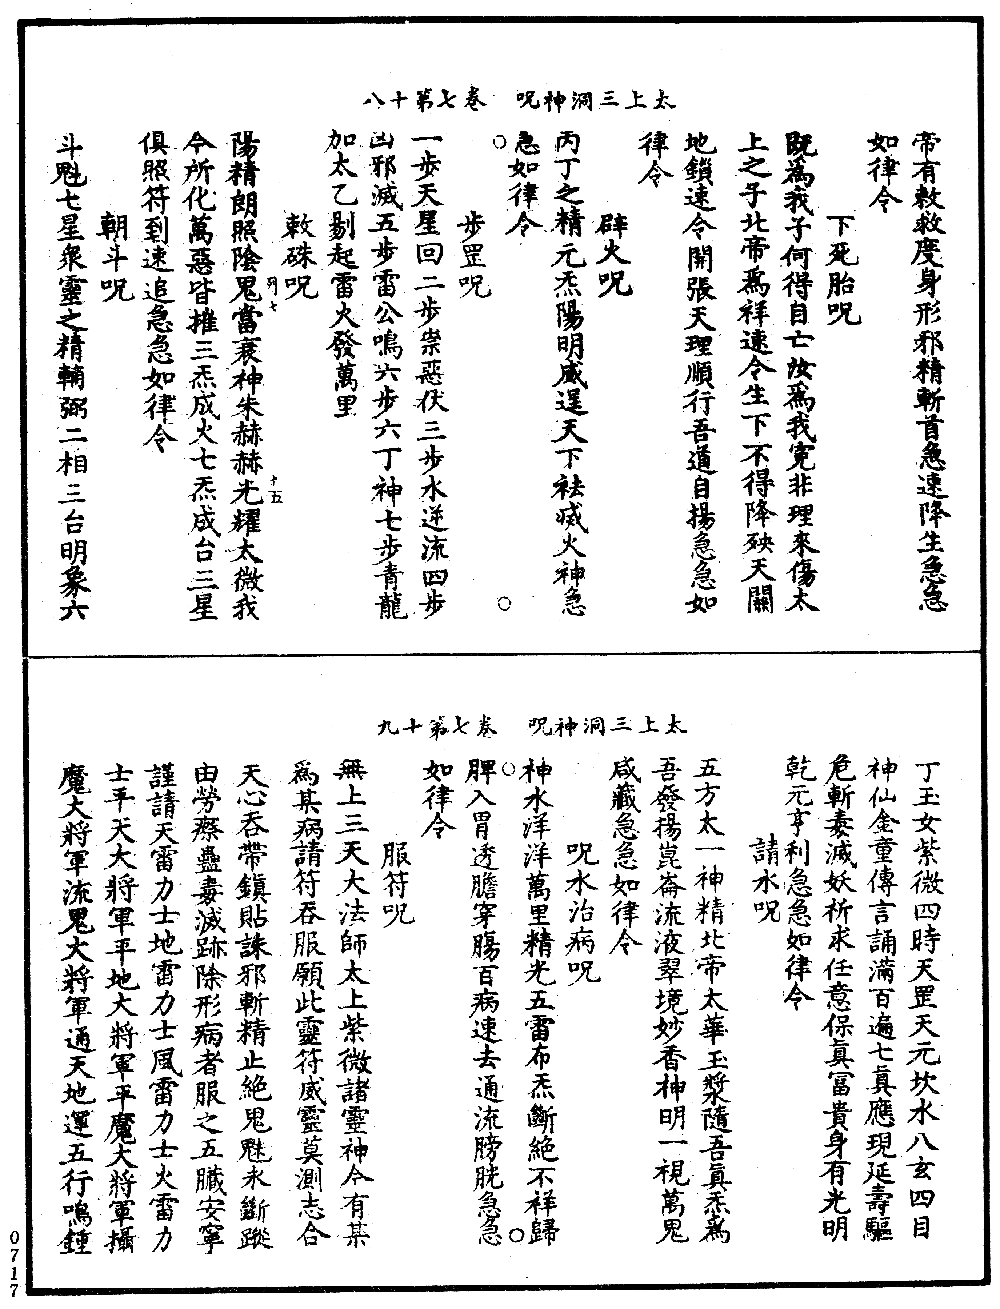 太上三洞神呪 卷七第十八
帝有敕救度身形邪精斬首急速降生急急
如律令
下死胎呪
既爲我子何得自亡汝爲我寃非理來傷太
上之子北帝爲祥速令生下不得降殃天關
地鎖速令開張天理順行吾道自揚急急如
律令
辟火呪
丙丁之精元炁陽明威逞天下袪烕火神急
急如律令
步罡呪
一步天星回二步祟惡伏三步水逆流四步
凶邪滅五步雷公鳴六步六丁神七步青龍
加太乙剔起雷火發萬里
敕硃呪
陽精朗照陰鬼當衰神朱赫赫光耀太微我
今所化萬惡皆摧三炁成火七炁成台三星
俱照符到速追急急如律令
朝斗呪
斗魁七星衆靈之精輔弼二相三台明象六
十五
太上三洞神呪 卷七第十九
丁玉女紫微四時天罡天元坎水八玄四目
神仙金童傳言誦滿百遍七真應現延壽驅
危斬毒滅妖祈求任意保真冨貴身有光明
乾元亨利急急如律令
請水呪
五方太一神精北帝太華玉漿隨吾真炁爲
吾發揚崑崙流液翠境妙香神明一視萬鬼
咸藏急急如律令
呪水治病呪
神水洋洋萬里精光五雷布炁斷絕不祥歸
脾入胃透膽穿腸百病速去通流膀胱急急
如律令
服符呪
無上三天大法師太上紫微諸靈神今有某
爲某病請符吞服願此靈符威靈莫測志合
天心吞帶鎮貼誅邪斬精止絕鬼魅永斷蹤
由勞瘵蠱毒滅跡除形病者服之五臟安寧
謹請天雷力士地雷力士風雷力士火雷力
士平天大將軍平地大將軍平魔大將軍攝
魔大將軍流鬼大將軍通天地運五行鳴鍾
0717